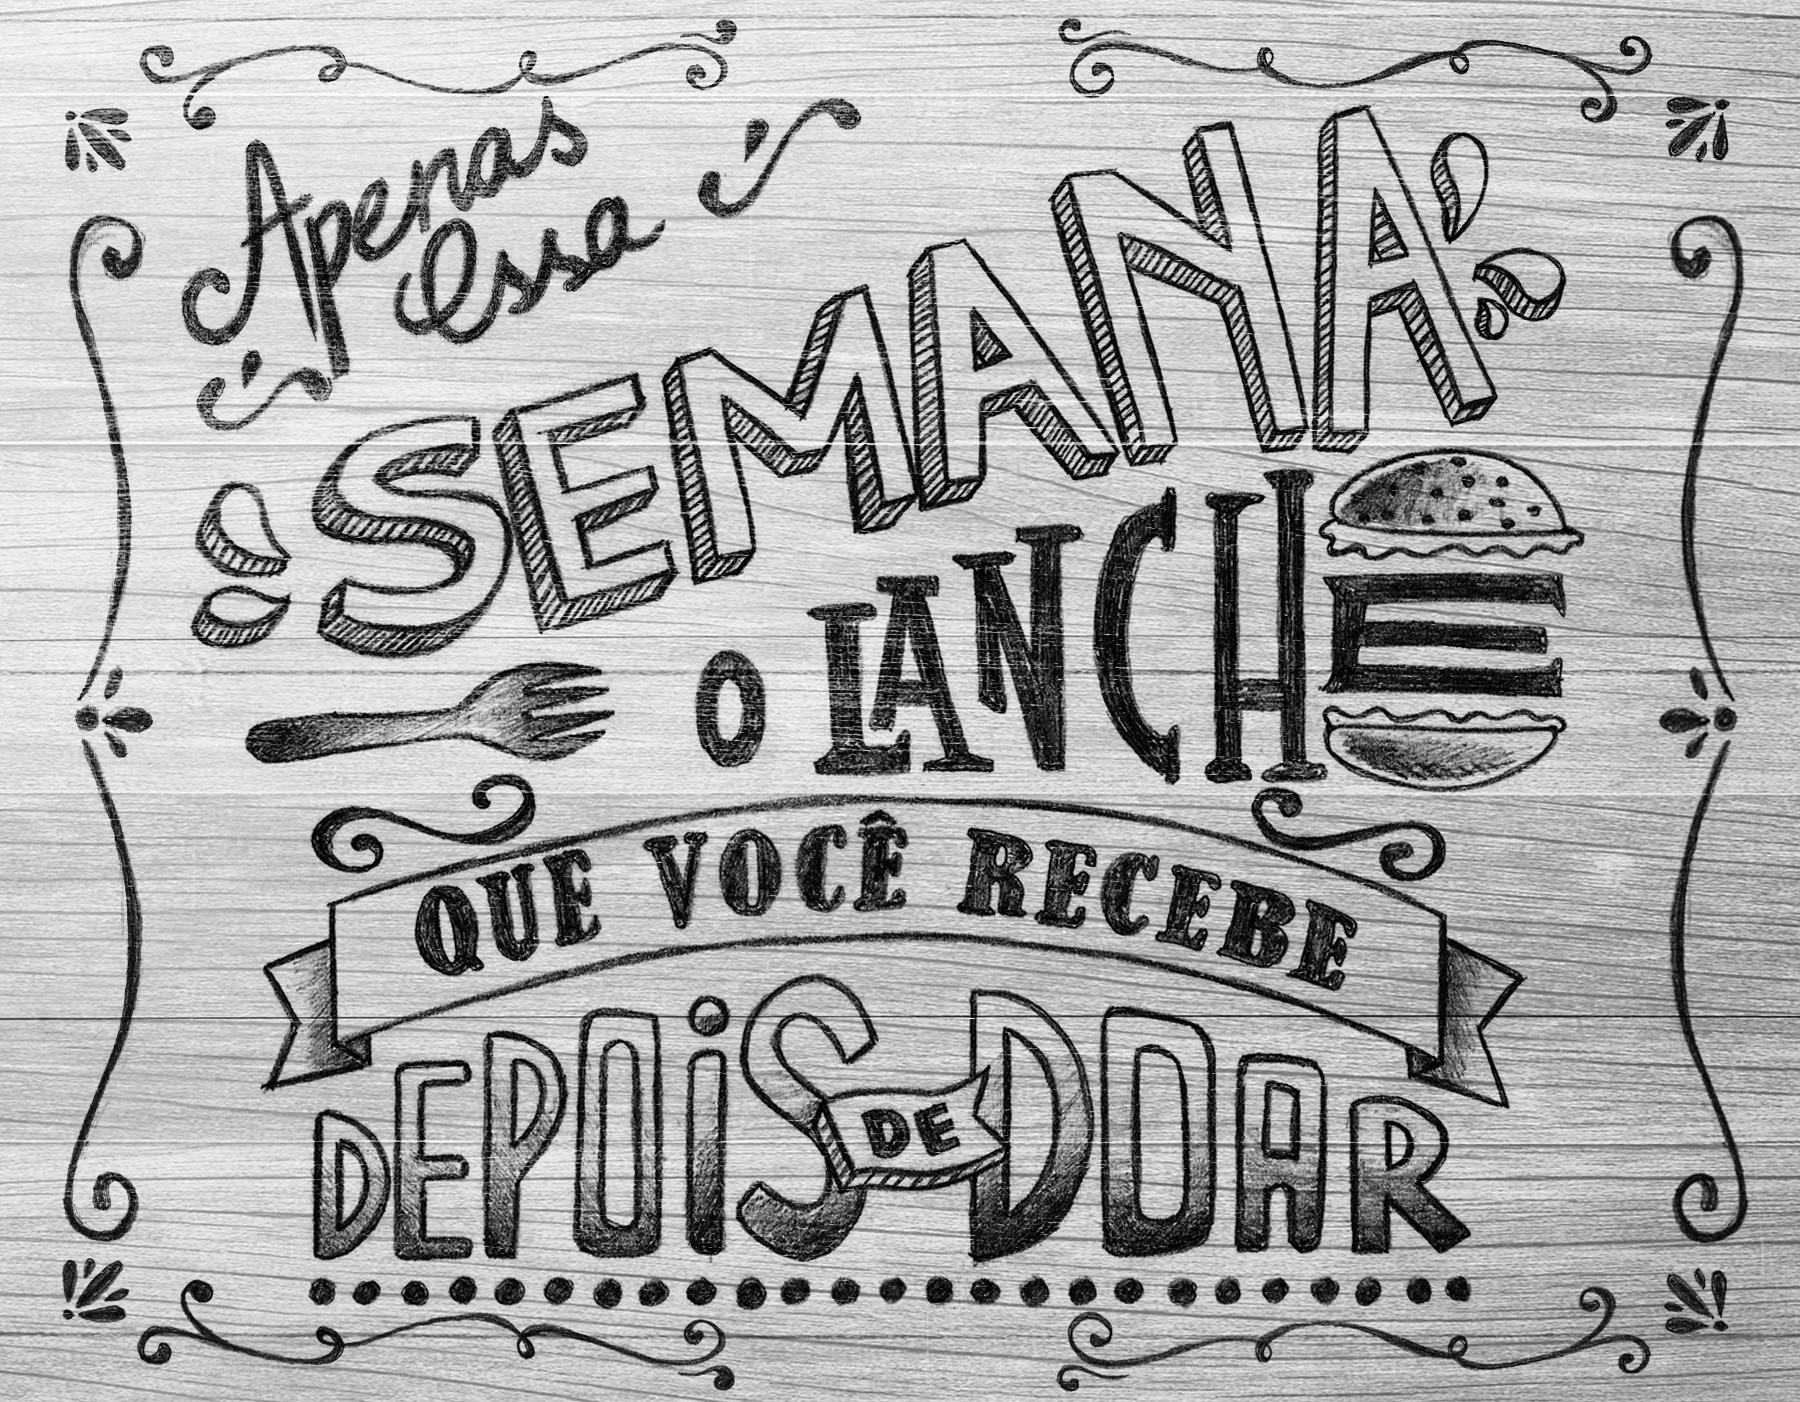 Apenas
essa
SEMANA
O LANCHE
QUE VOCÊ RECEBE
DEPOIS DE DOAR